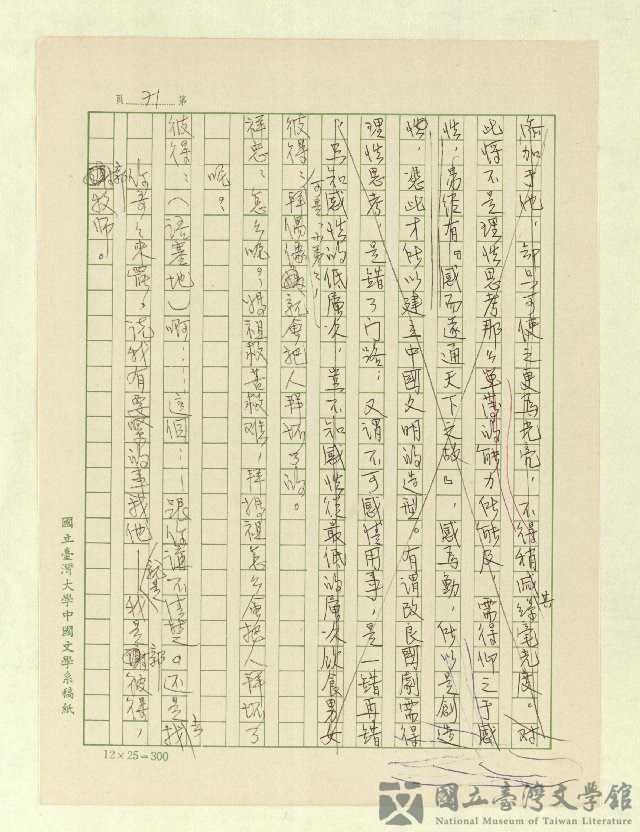 第 71 頁
添加于她，卻只可使之更為光亮，不得稍減其絲毫光度。對
此將不是理性思考那么單薄的能力所能及，需得仰之于感
性，易傳有『感而遂通天下之故』，感為動，所以是創造
性，憑此才能以建立中國文明的造型。有謂改良國劇需得
理性思考，是錯了門路；又謂不可感情用事，是一錯再錯
，只知感性的低層次，豈不知感性從最低的層次飲食男女
彼得：拜偶像就會把人拜坏了的。
祥忠：怎么呢？媽祖救苦救難，拜媽祖怎么會把人拜坏了
呢？
彼得：（語塞地）啊……這個……跟你講不清楚。還是找
你哥哥來罷，說我有要緊的事找他——就是我是郭彼得，
郭牧師。
國立臺灣大學中國文學系稿紙
12×25=300
國立臺灣文學館
National Museum of Taiwan Literature